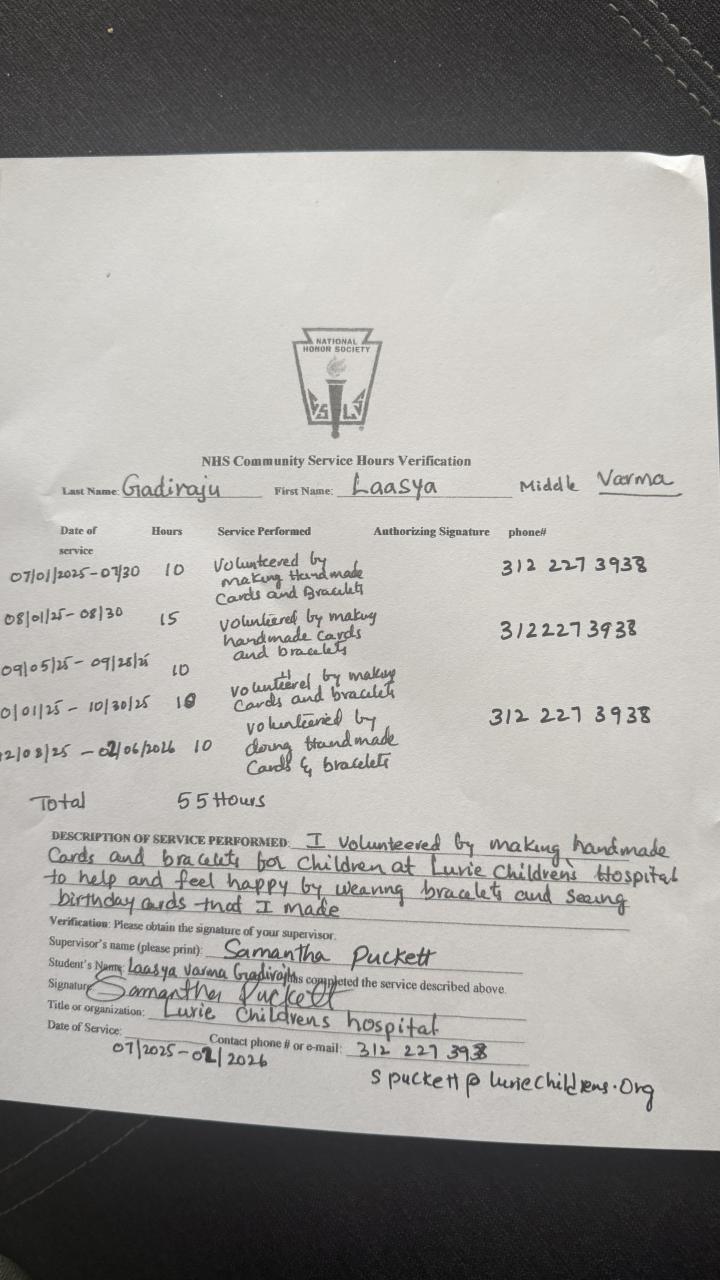 NATIONAL
HONOR SOCIETY
S L S
NHS Community Service Hours Verification
Last Name: Gadiraju First Name: Laasya Middle Varma
Date of service Hours Service Performed Authorizing Signature phone#
07/01/2025-07/30 10 Volunteered by 312 227 3938
making Handmade
Cards and Bracelets
08/01/25-08/30 15 volunteered by making 3122273938
handmade cards
and bracelets
09/05/25-09/28/25 10 volunteered by making
Cards and bracelets
0/01/25 - 10/30/25 10 volunteered by 312 227 3938
2/08/25 - 02/06/2026 10 doing Handmade
Cards & bracelets
Total 55 Hours
DESCRIPTION OF SERVICE PERFORMED: I volunteered by making handmade
Cards and bracelets for Children at Lurie Children's Hospital
to help and feel happy by wearing bracelets and seeing
birthday cards that I made
Verification: Please obtain the signature of your supervisor.
Supervisor's name (please print): Samantha Puckett
Student's Name: Laasya Varma Gadiraju has completed the service described above.
Signature Samantha Puckett
Title or organization: Lurie Childrens hospital
Date of Service: 07/2025-02/2026 Contact phone # or e-mail: 312 227 3938
spuckett@luriechildrens.org